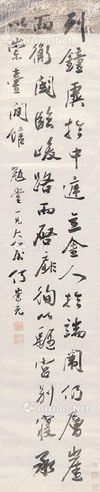 列鐘虡於中庭立金人於端闈仍層崖
而衡閾臨峻路而啟扉徇以離宮別寢承
以崇臺閒館
堂一兄大人